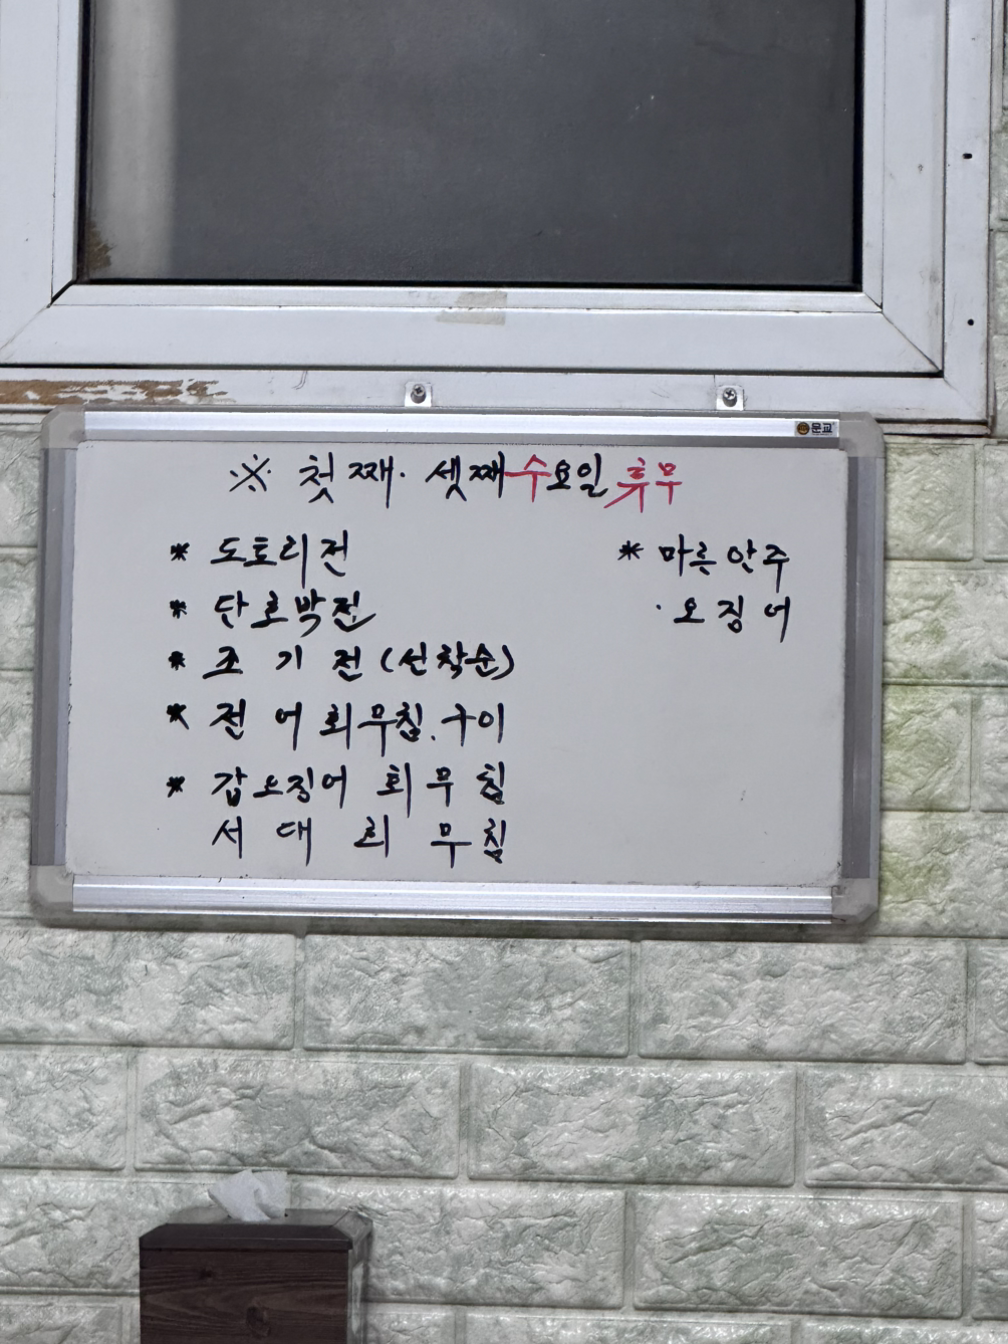 문교
※ 첫째. 셋째수요일휴무
* 도토리전
* 단호박전
* 조기전(선착순)
* 전어회무침.구이
* 갑오징어 회무침
서대회무침
* 마른안주
· 오징어